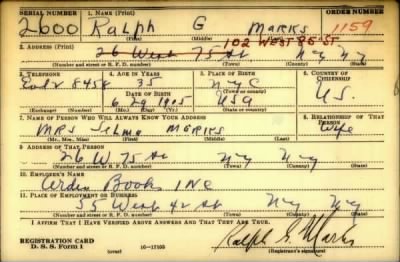 SERIAL NUMBER 1. NAME (Print) ORDER NUMBER
2600 Ralph G MARKS 1159
(First) (Middle) (Last)
102 WEST 85 ST
2. ADDRESS (Print)
26 West 75 St NY NY
(Number and street or R. F. D. number) (Town) (County) (State)
3. TELEPHONE 4. AGE IN YEARS 5. PLACE OF BIRTH 6. COUNTRY OF CITIZENSHIP
8458 35 NYC
(Town or county)
DATE OF BIRTH
6 29 1905 USA U.S.
(Exchange) (Number) (Mo.) (Day) (Yr.) (State or country)
7. NAME OF PERSON WHO WILL ALWAYS KNOW YOUR ADDRESS 8. RELATIONSHIP OF THAT PERSON
MRS Selma MARKS Wife
(Mr., Mrs., Miss) (First) (Middle) (Last)
9. ADDRESS OF THAT PERSON
26 W 75 St NY NY
(Number and street or R. F. D. number) (Town) (County) (State)
10. EMPLOYER'S NAME
Books INC
11. PLACE OF EMPLOYMENT OR BUSINESS
55 West 42 St NY NY
(Number and street or R. F. D. number) (Town) (County) (State)
I AFFIRM THAT I HAVE VERIFIED ABOVE ANSWERS AND THAT THEY ARE TRUE.
REGISTRATION CARD
D. S. S. FORM 1 (over) 16-17105
Ralph G. Marks
(Registrant's signature)